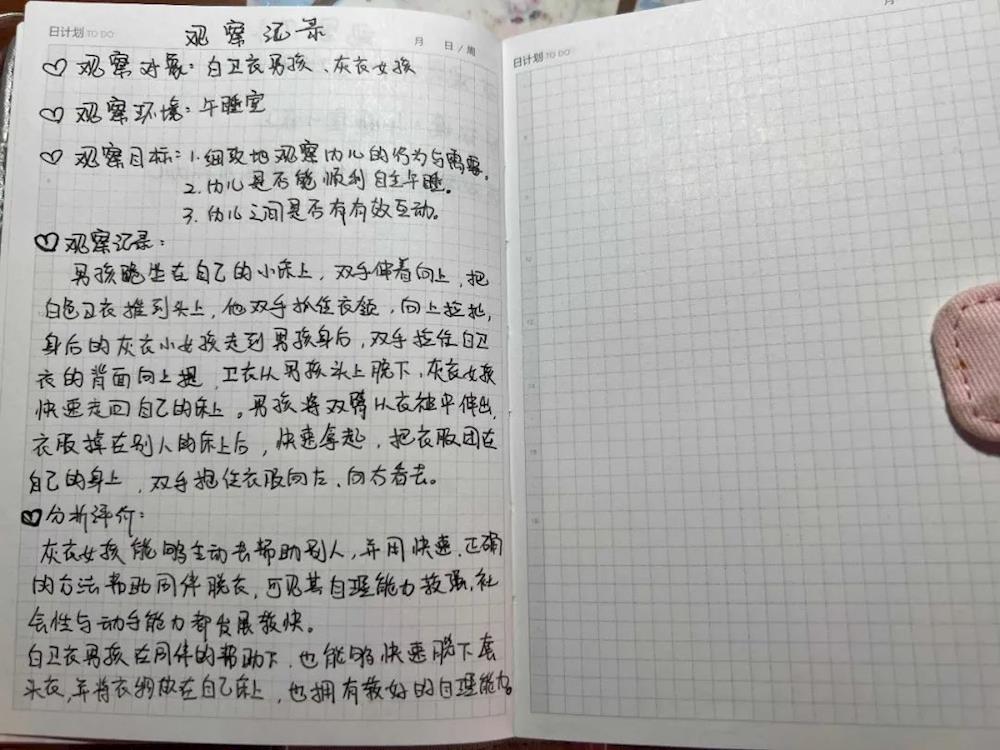 日计划 TO DO
观察记录
月 日/周
♡ 观察对象：白卫衣男孩、灰衣女孩
♡ 观察环境：午睡室
♡ 观察目标：1.细致地观察幼儿的行为与需要。
2.幼儿是否能顺利自主午睡。
3.幼儿之间是否有有效互动。
♡ 观察记录：
男孩跪坐在自己的小床上，双手伸着向上，把
白色卫衣推到头上，他双手抓住衣领，向上拉扯，
身后的灰衣小女孩走到男孩身后，双手拉住白卫
衣的背面向上提，卫衣从男孩头上脱下，灰衣女孩
快速走回自己的床上。男孩将双臂从衣袖中伸出，
衣服掉在别人的床上后，快速拿起，把衣服团在
自己的身上，双手抱住衣服向左、向右看去。
♥ 分析评价：
灰衣女孩能够主动去帮助别人，并用快速、正确
的方法帮助同伴脱衣，可见其自理能力较强，社
会性与动手能力都发展较快。
白卫衣男孩在同伴的帮助下，也能够快速脱下套
头衣，并将衣物放在自己床上，也拥有较好的自理能力。
月
日计划 TO DO